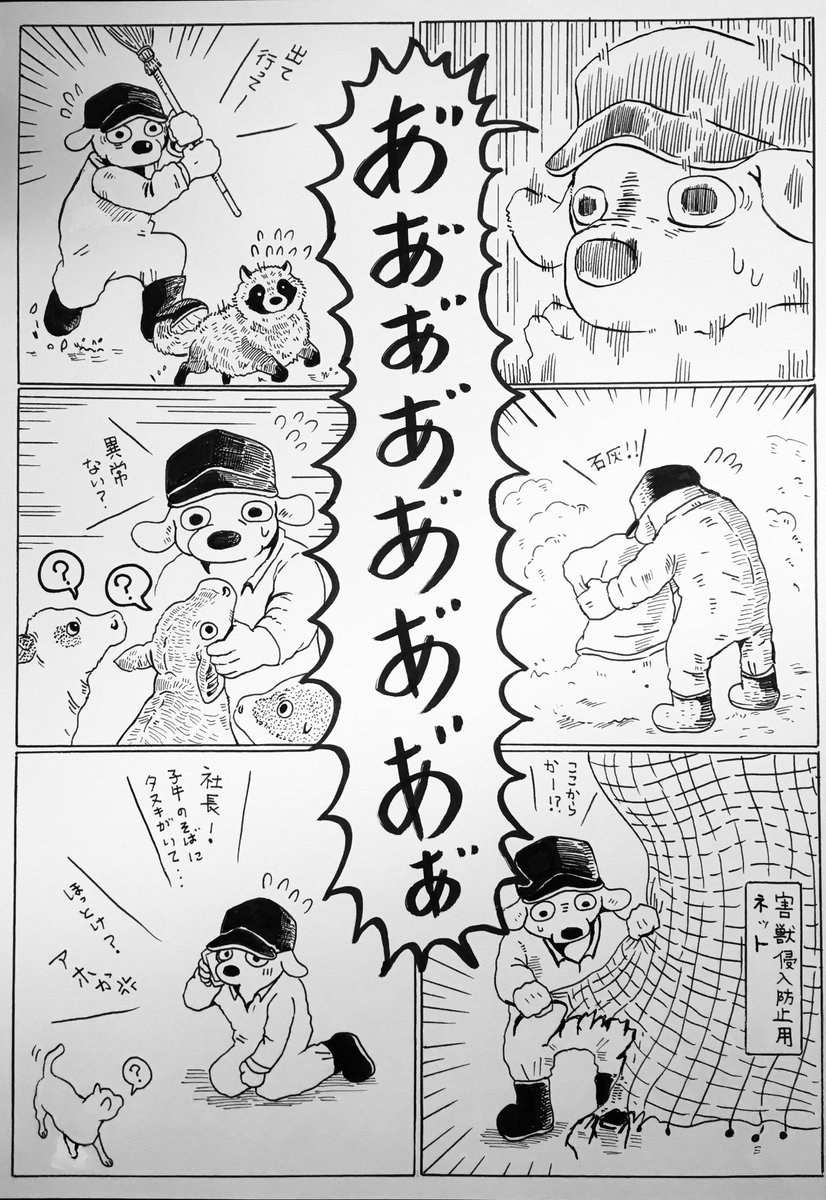 あ゙あ゙あ゙あ゙あ゙あ゙あ゙ぁ゙
出て
行ってー
石灰!!
異常
ない?
?
?
ここから
かー!?
害獣侵入防止用
ネット
社長!
子牛のそばに
タヌキがいて…
ほっとけ?
アホか
?